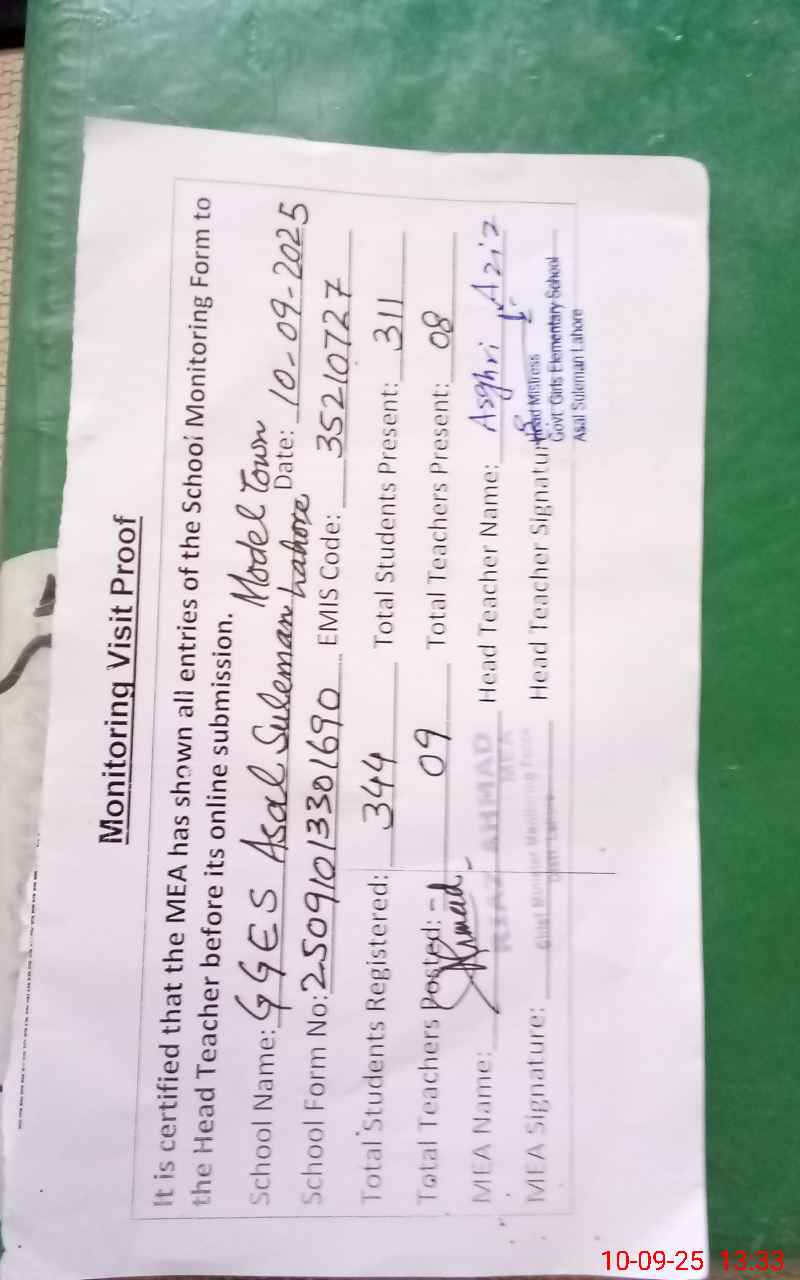 Monitoring Visit Proof
It is certified that the MEA has shown all entries of the School Monitoring Form to
the Head Teacher before its online submission.
School Name: GGES Asal Suleman Lahore Model Town Date: 10-09-2025
School Form No: 2509101330 1690 EMIS Code: 35210727
Total Students Registered: 344 Total Students Present: 311
Total Teachers Posted: 09 Total Teachers Present: 08
Ahmad
MEA Name: RIAZ AHMAD Head Teacher Name: Asghri Aziz
MEA
MEA Signature: Head Teacher Signature
Chief Minister Monitoring Force
Distt. Lahore
Head Mistress
Govt. Girls Elementary School
Asal Suleman Lahore
10-09-25 13:33